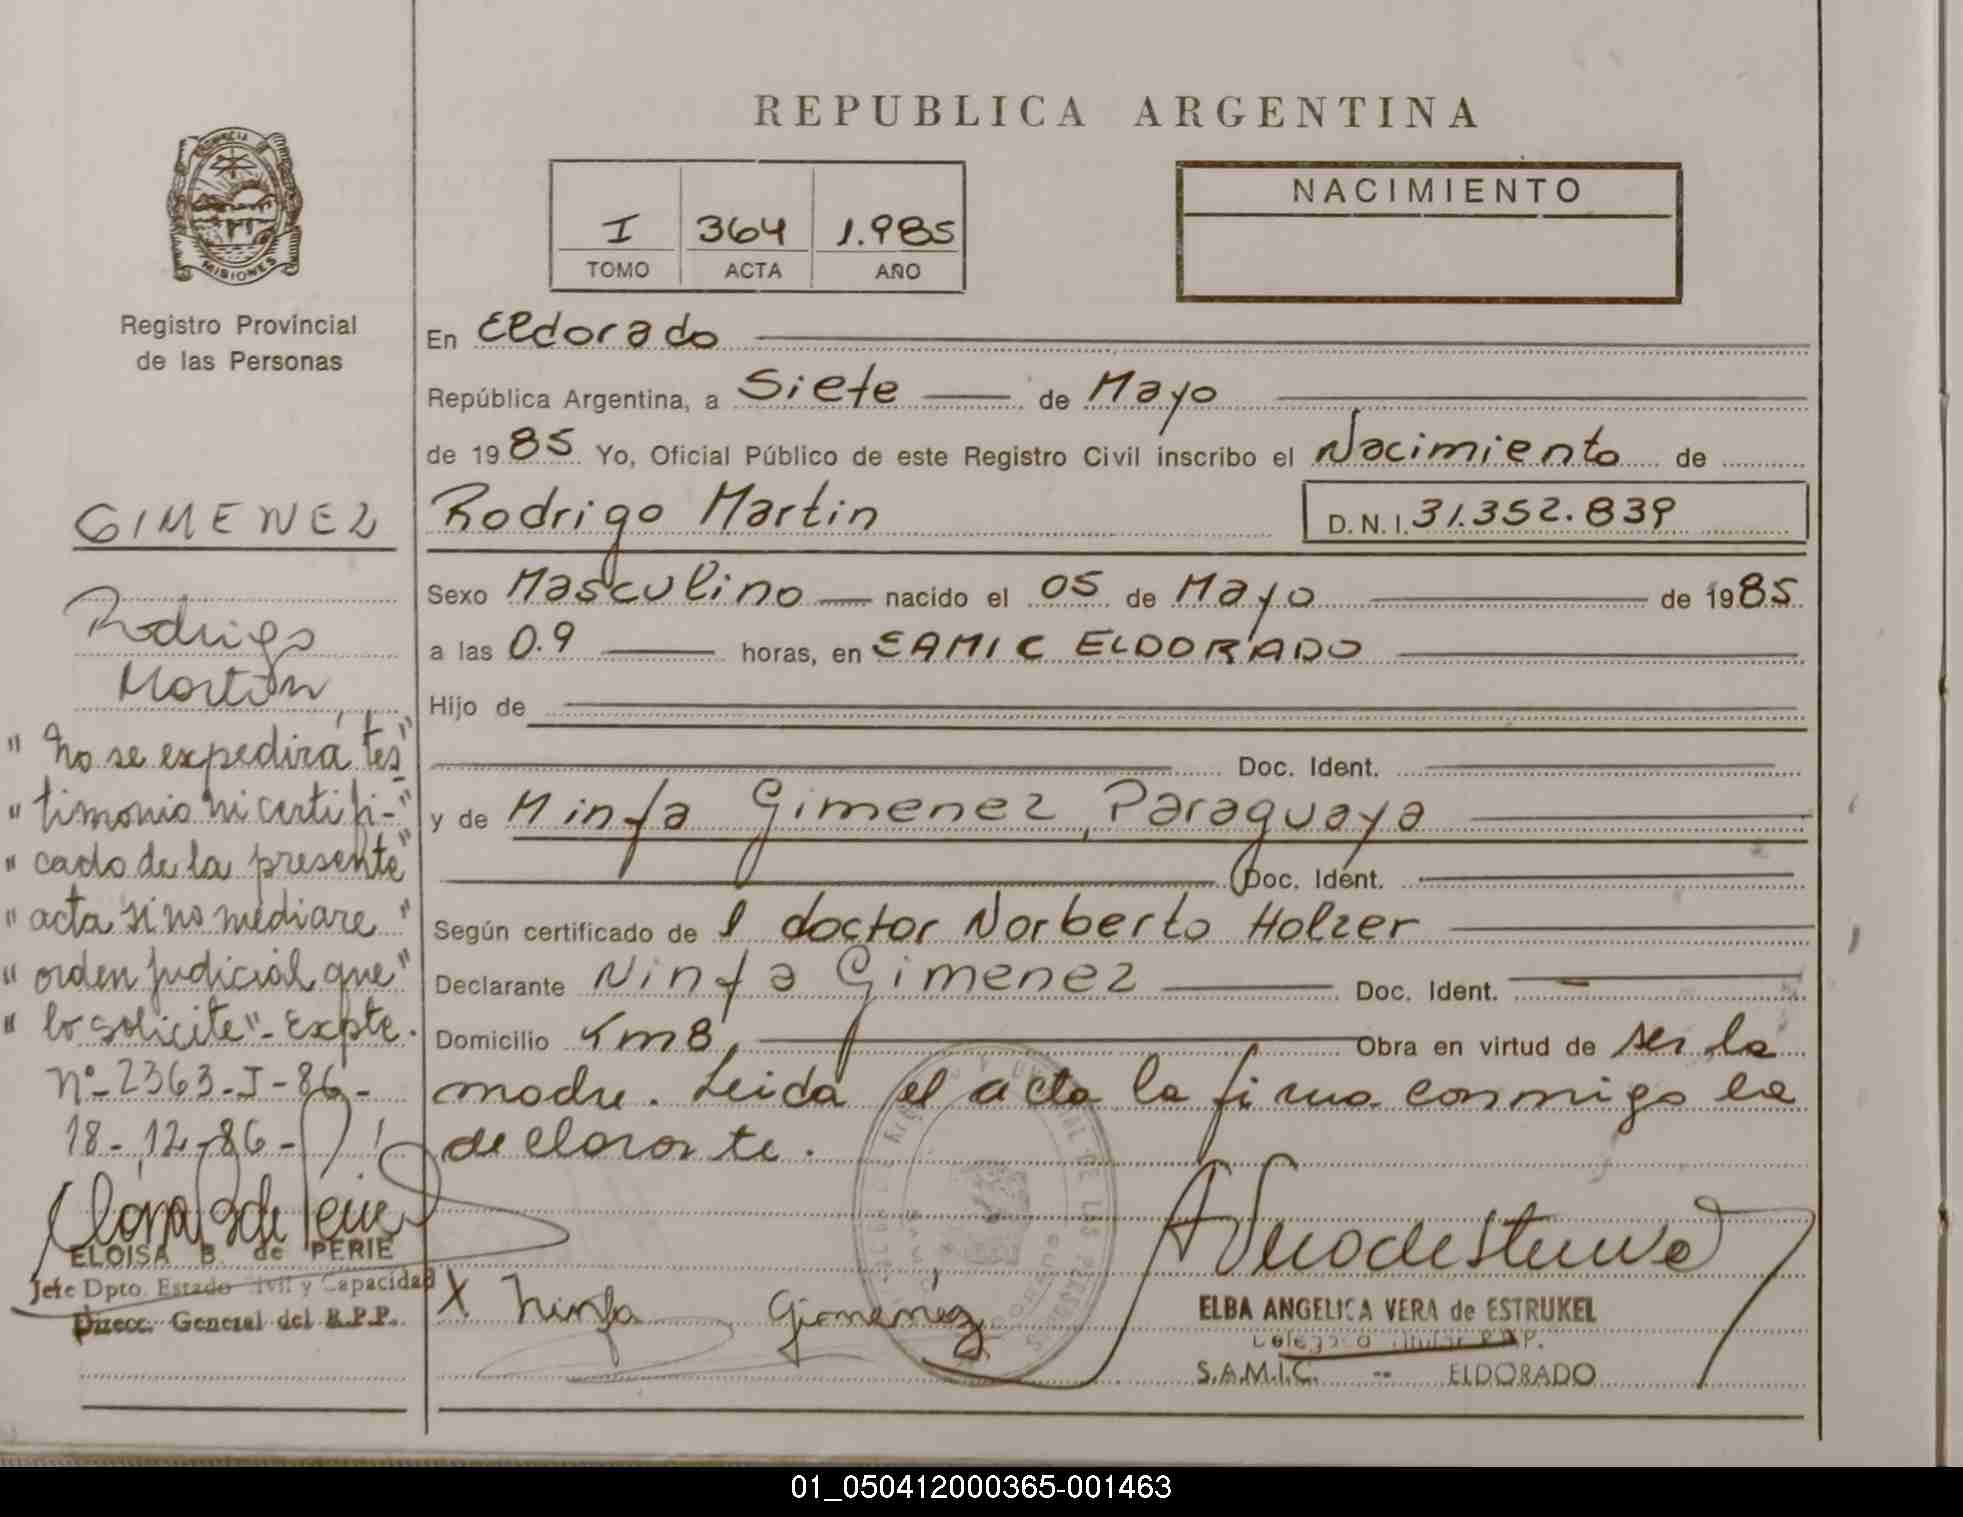 REPUBLICA ARGENTINA
PROVINCIA
MISIONES
Registro Provincial
de las Personas
I 364 1.985
TOMO ACTA AÑO
NACIMIENTO
GIMENEZ
Rodrigo
Martin
" No se expedirá tes"
" timonio ni certifi-"
" cado de la presente"
" acta si no mediare "
" orden judicial que"
" lo solicite"- Expte.
nº-2363-I-86-
18-12-86-
ELOISA B. de PERIE
Jefe Dpto. Estado Civil y Capacidad
Direcc. General del R.P.P.
En Eldorado
República Argentina, a Siete de Mayo
de 1985 Yo, Oficial Público de este Registro Civil inscribo el Nacimiento de
Rodrigo Martin D.N.I. 31.352.839
Sexo Masculino nacido el 05 de Mayo de 1985
a las 0.9 horas, en EAMIC ELDORADO
Hijo de
Doc. Ident.
y de Minfa Gimenez, Paraguaya
Doc. Ident.
Según certificado de l doctor Norberto Holzer
Declarante Ninfa Gimenez Doc. Ident.
Domicilio Km 8, Obra en virtud de ser la
madre. Leida el acta la firma conmigo la
declarante.
X Ninfa Gimenez
ELBA ANGELICA VERA de ESTRUKEL
S.A.M.I.C. -- ELDORADO
01_050412000365-001463